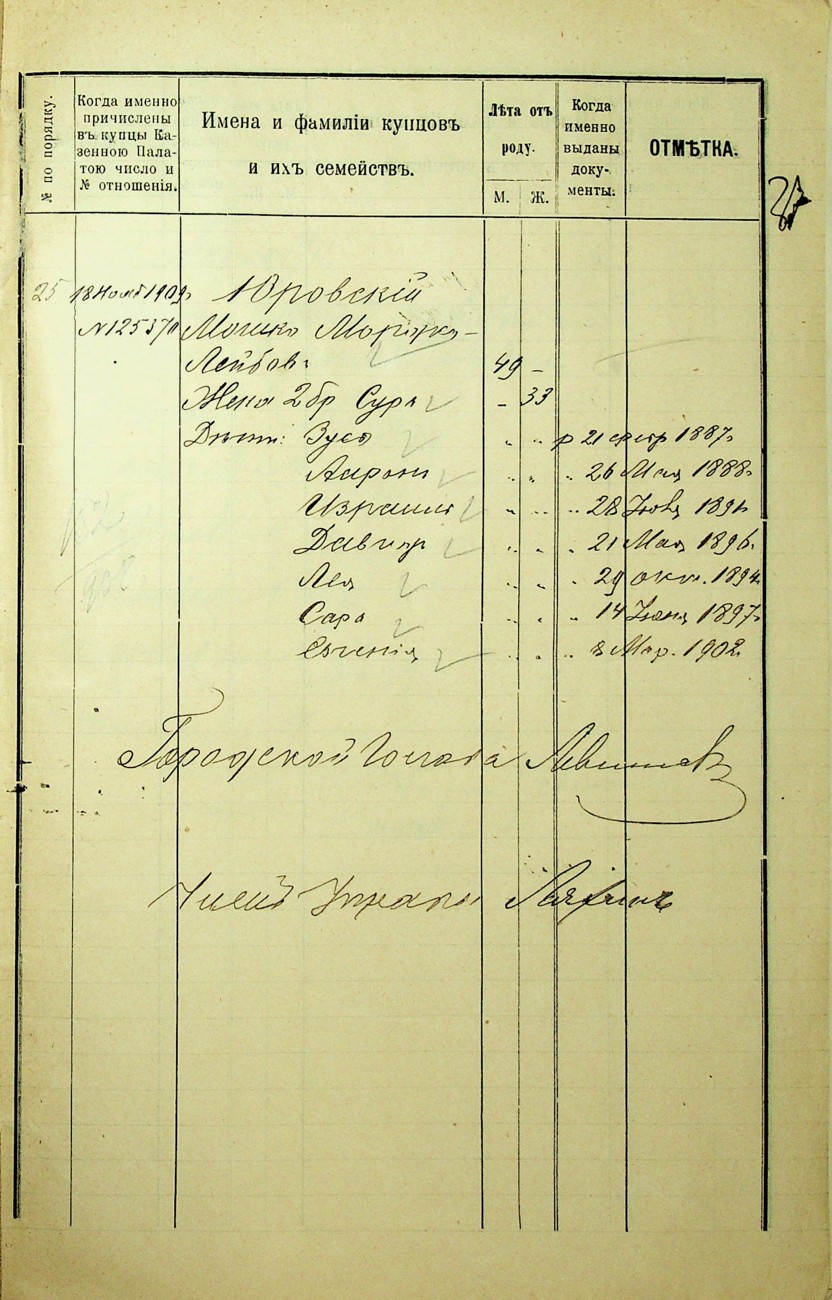 № по порядку.
Когда именно
причислены
въ купцы Ка-
зенною Пала-
тою число и
№ отношенія.
Имена и фамиліи купцовъ
и ихъ семействъ.
Лѣта отъ
роду.
М.
Ж.
Когда
именно
выданы
доку-
менты.
ОТМѢТКА.
25 18 1909 г Юровскій
№ 125370 Мошко
Лейбов. 49 –
Жена 2 бр Сура – 33
Дѣти: Зуся " " р 21 февр 1887 г
Аарон " " " 26 Мая 1888 г
Израиль " " " 28 1891
Давид " " " 21 Мая 1896
Лея " " " 29 окт. 1894
Сара " " " 14 Июня 1897 г
Евгенія " " " 8 Мар. 1902
Городской Голова
Членъ Управы